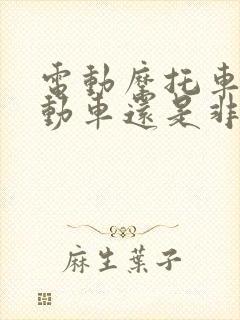 電動摩托車
動車還是非
麻生葉子